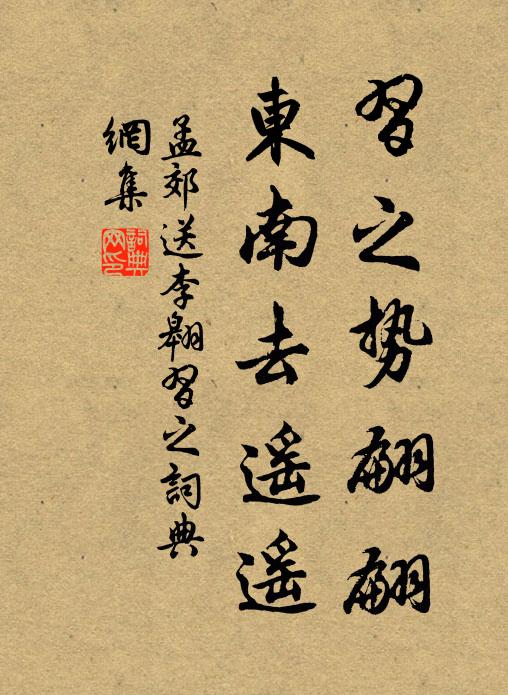 習之势翩翩
東南去遥遥
孟郊送李翱習之詞典
網集
詞典網印